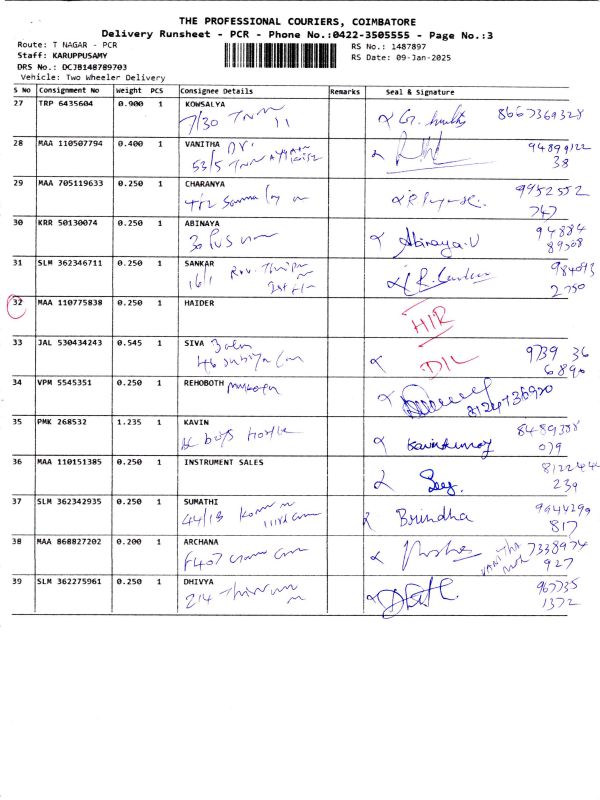 THE PROFESSIONAL COURIERS, COIMBATORE
Delivery Runsheet - PCR - Phone No.:0422-3505555 - Page No.:3
Route: T NAGAR - PCR
RS No.: 1487897
Staff: KARUPPUSAMY
RS Date: 09-Jan-2025
DRS No.: DCJB148789703
Vehicle: Two Wheeler Delivery
S No Consignment No Weight PCS Consignee Details Remarks Seal & Signature
27 TRP 6435604 0.900 1 KOWSALYA
7/30 11 8667369328
28 MAA 110507794 0.400 1 VANITHA Dr.
53/5 94899122
38
29 MAA 705119633 0.250 1 CHARANYA
9952552
747
30 KRR 50130074 0.250 1 ABINAYA
30 Abinaya.U 94884
89508
31 SLM 362346711 0.250 1 SANKAR
16/1 984093
2750
32 MAA 110775838 0.250 1 HAIDER
HIR
33 JAL 530434243 0.545 1 SIVA
DIL 9739 36
6890
34 VPM 5545351 0.250 1 REHOBOTH
8124736920
35 PMK 268532 1.235 1 KAVIN
boys 8489388
079
36 MAA 110151385 0.250 1 INSTRUMENT SALES
8122444
239
37 SLM 362342935 0.250 1 SUMATHI
44/13 Brindha 9944299
817
38 MAA 868827202 0.200 1 ARCHANA
F407 VANITHA 7338974
927
39 SLM 362275961 0.250 1 DHIVYA
214 967735
1372